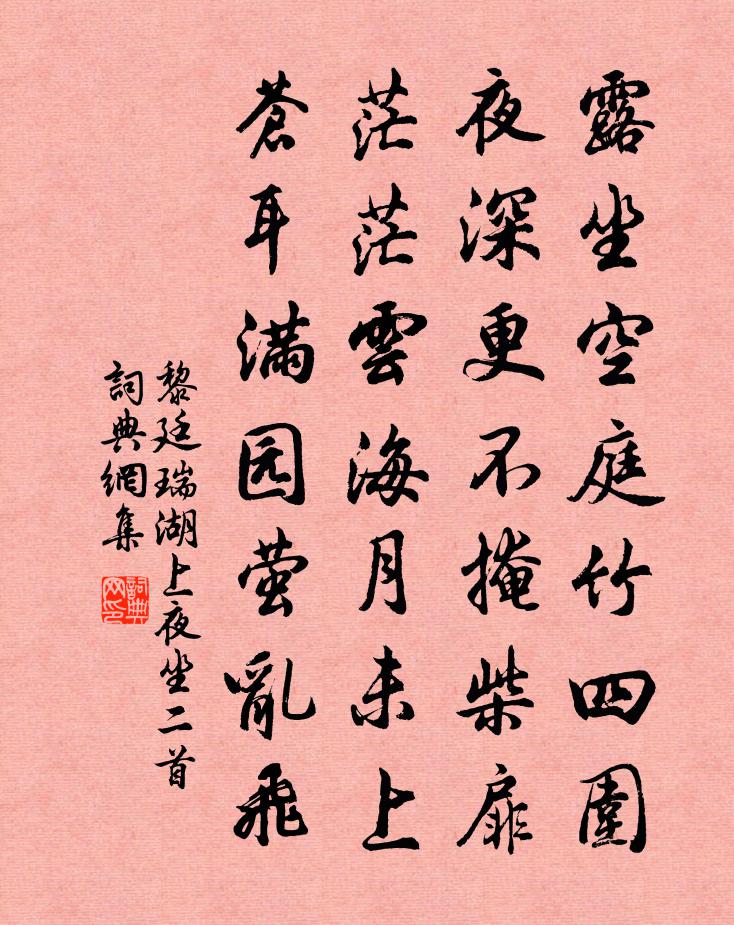 露坐空庭竹四圍
夜深更不掩柴扉
茫茫雲海月未上
蒼耳满园萤亂飛
黎廷瑞湖上夜坐二首
詞典網集
詞典网印